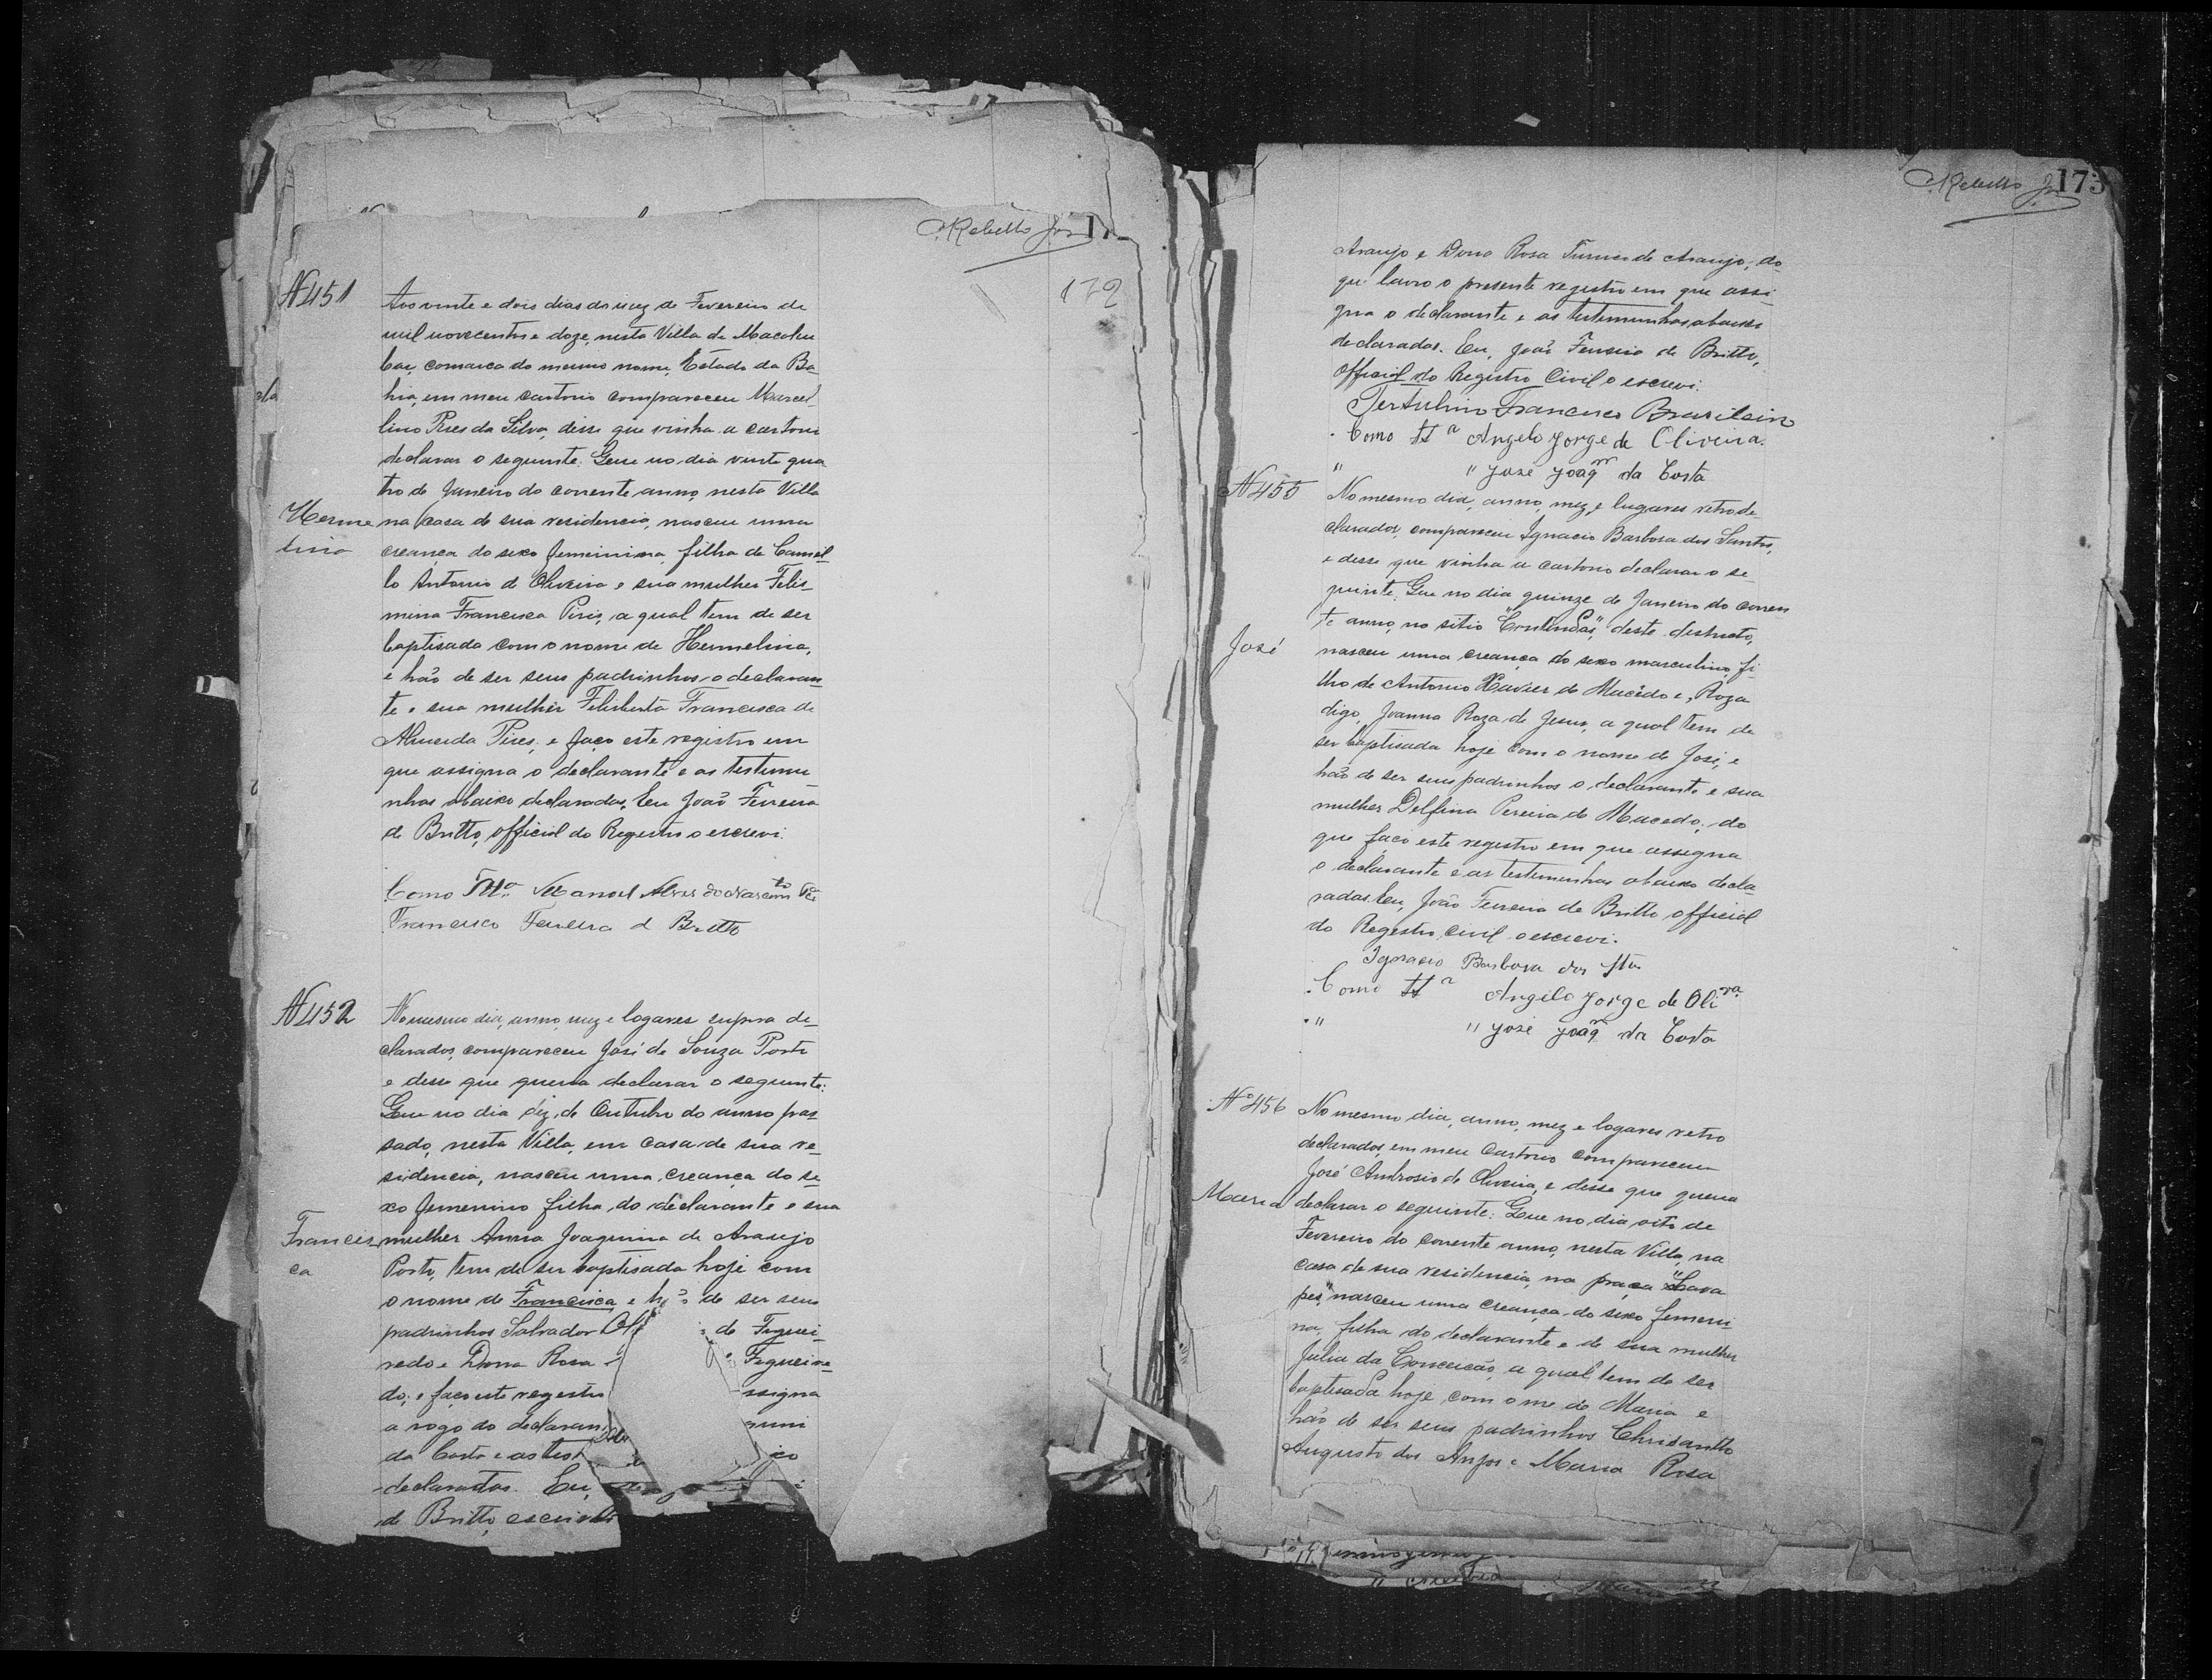 Rebello Jor 17
172
N 451
Aos vinte e dois dias do mez de Fevereiro de
mil novecentos e doze, nesta Villa de Macahu
bas, comarca do mesmo nome, Estado da Ba-
hia, em meu cartorio compareceu Marcel-
lino Pires da Silva, disse que vinha a cartorio
declarar o seguinte: Que no dia vinte qua
tro de Janeiro do corrente anno, nesta Villa
Herme
lina
na casa de sua residencia, nasceu uma
creança do sexo femeinina, filha de Camil-
lo Antonio de Oliveira e sua mulher Felis-
mina Francisca Pires, a qual tem de ser
baptisada com o nome de Hermelina,
e hão de ser seus padrinhos o declaran-
te e sua mulher Felisberta Francisca de
Almeida Pires; e faço este registro em
que assigna o declarante e as testemu
nhas abaixo declaradas. Eu João Ferreira
de Britto, official do Registro o escrevi.
Como Tta Manoel Alves do Nascimto
Francisco Ferreira d Britto
N 452
No mesmo dia, anno, mez e logares supra de-
clarados, compareceu José de Souza Porto
e disse que queria declarar o seguinte:
Que no dia dez de Outubro do anno pas-
sado, nesta Villa, em casa de sua re-
sidencia, nasceu uma creança do se-
xo femenino filha do declarante e sua
Francis
ca
mulher Anna Joaquina de Araujo
Porto, tem de ser baptisada hoje com
o nome de Francisca e hão de ser seus
padrinhos Salvador Oli de Figuei-
redo e Dona Rosa Figueire-
do; e faço este registro ssigna
a rogo do declaran
da Costa e as tes
declarados. Eu,
de Britto, escrivão
Rebello Jor 173
Araujo e Dona Rosa Turnes de Araujo, do
que lavro o presente registro em que assi
gna o declarante e as testemunhas abaixo
declaradas. Eu, João Ferreira de Britto,
official do Registro Civil o escrevi.
Tertulino Francisco Brasileiro
Como tta Angelo Jorge de Oliveira.
" " José Joaqm da Costa
N 455
No mesmo dia, anno, mez, e lugares retro de-
clarados, compareceu Ignacio Barbosa dos Santos,
e disse que vinha a cartorio declarar o se-
guinte: Que no dia quinze de Janeiro do corren
te anno, no sitio "Contendas", deste districto,
José
nasceu uma creança do sexo masculino, fi-
lho de Antonio Xavier de Macêdo e, Roza
digo, Joanna Roza de Jesus, a qual tem de
ser baptisada hoje com o nome de José, e
hão de ser seus padrinhos o declarante e sua
mulher Delfina Pereira de Macedo; do
que faço este registro em que assigna
o declarante e as testemunhas abaixo decla-
radas. Eu, João Ferreira de Britto official
do Registro civil o escrevi.
Ignacio Barbosa dos Stos
Como tta Angelo Jorge de Oliva
" " José Joaqm da Costa
No 456
No mesmo dia, anno, mez e logares retro
declarados, em meu Cartorio compareceu
José Ambrosio de Oliveira, e disse que queria
Maria
declarar o seguinte: Que no dia oito de
Fevereiro do corrente anno, nesta Villa, na
casa de sua residencia, na praça "Lava
pés", nasceu uma creança do sexo femeni-
na, filha do declarante e de sua mulher
Julia da Conceição, a qual tem de ser
baptisada hoje com o me de Maria e
hão de ser seus padrinhos Chrisantho
Augusto dos Anjos e Maria Rosa